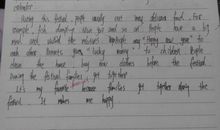 calendar.
During this festival people usually eat many delicious food. For
example, fish dumplings and so on. People have a big
meal and the relatives "Happy new year" to
each other. Parents give "lucky money" to children. People
clean the house buy new clothes before the festival.
During the festival families get together
It's my favorite because families get together during the
festival. It makes me happy